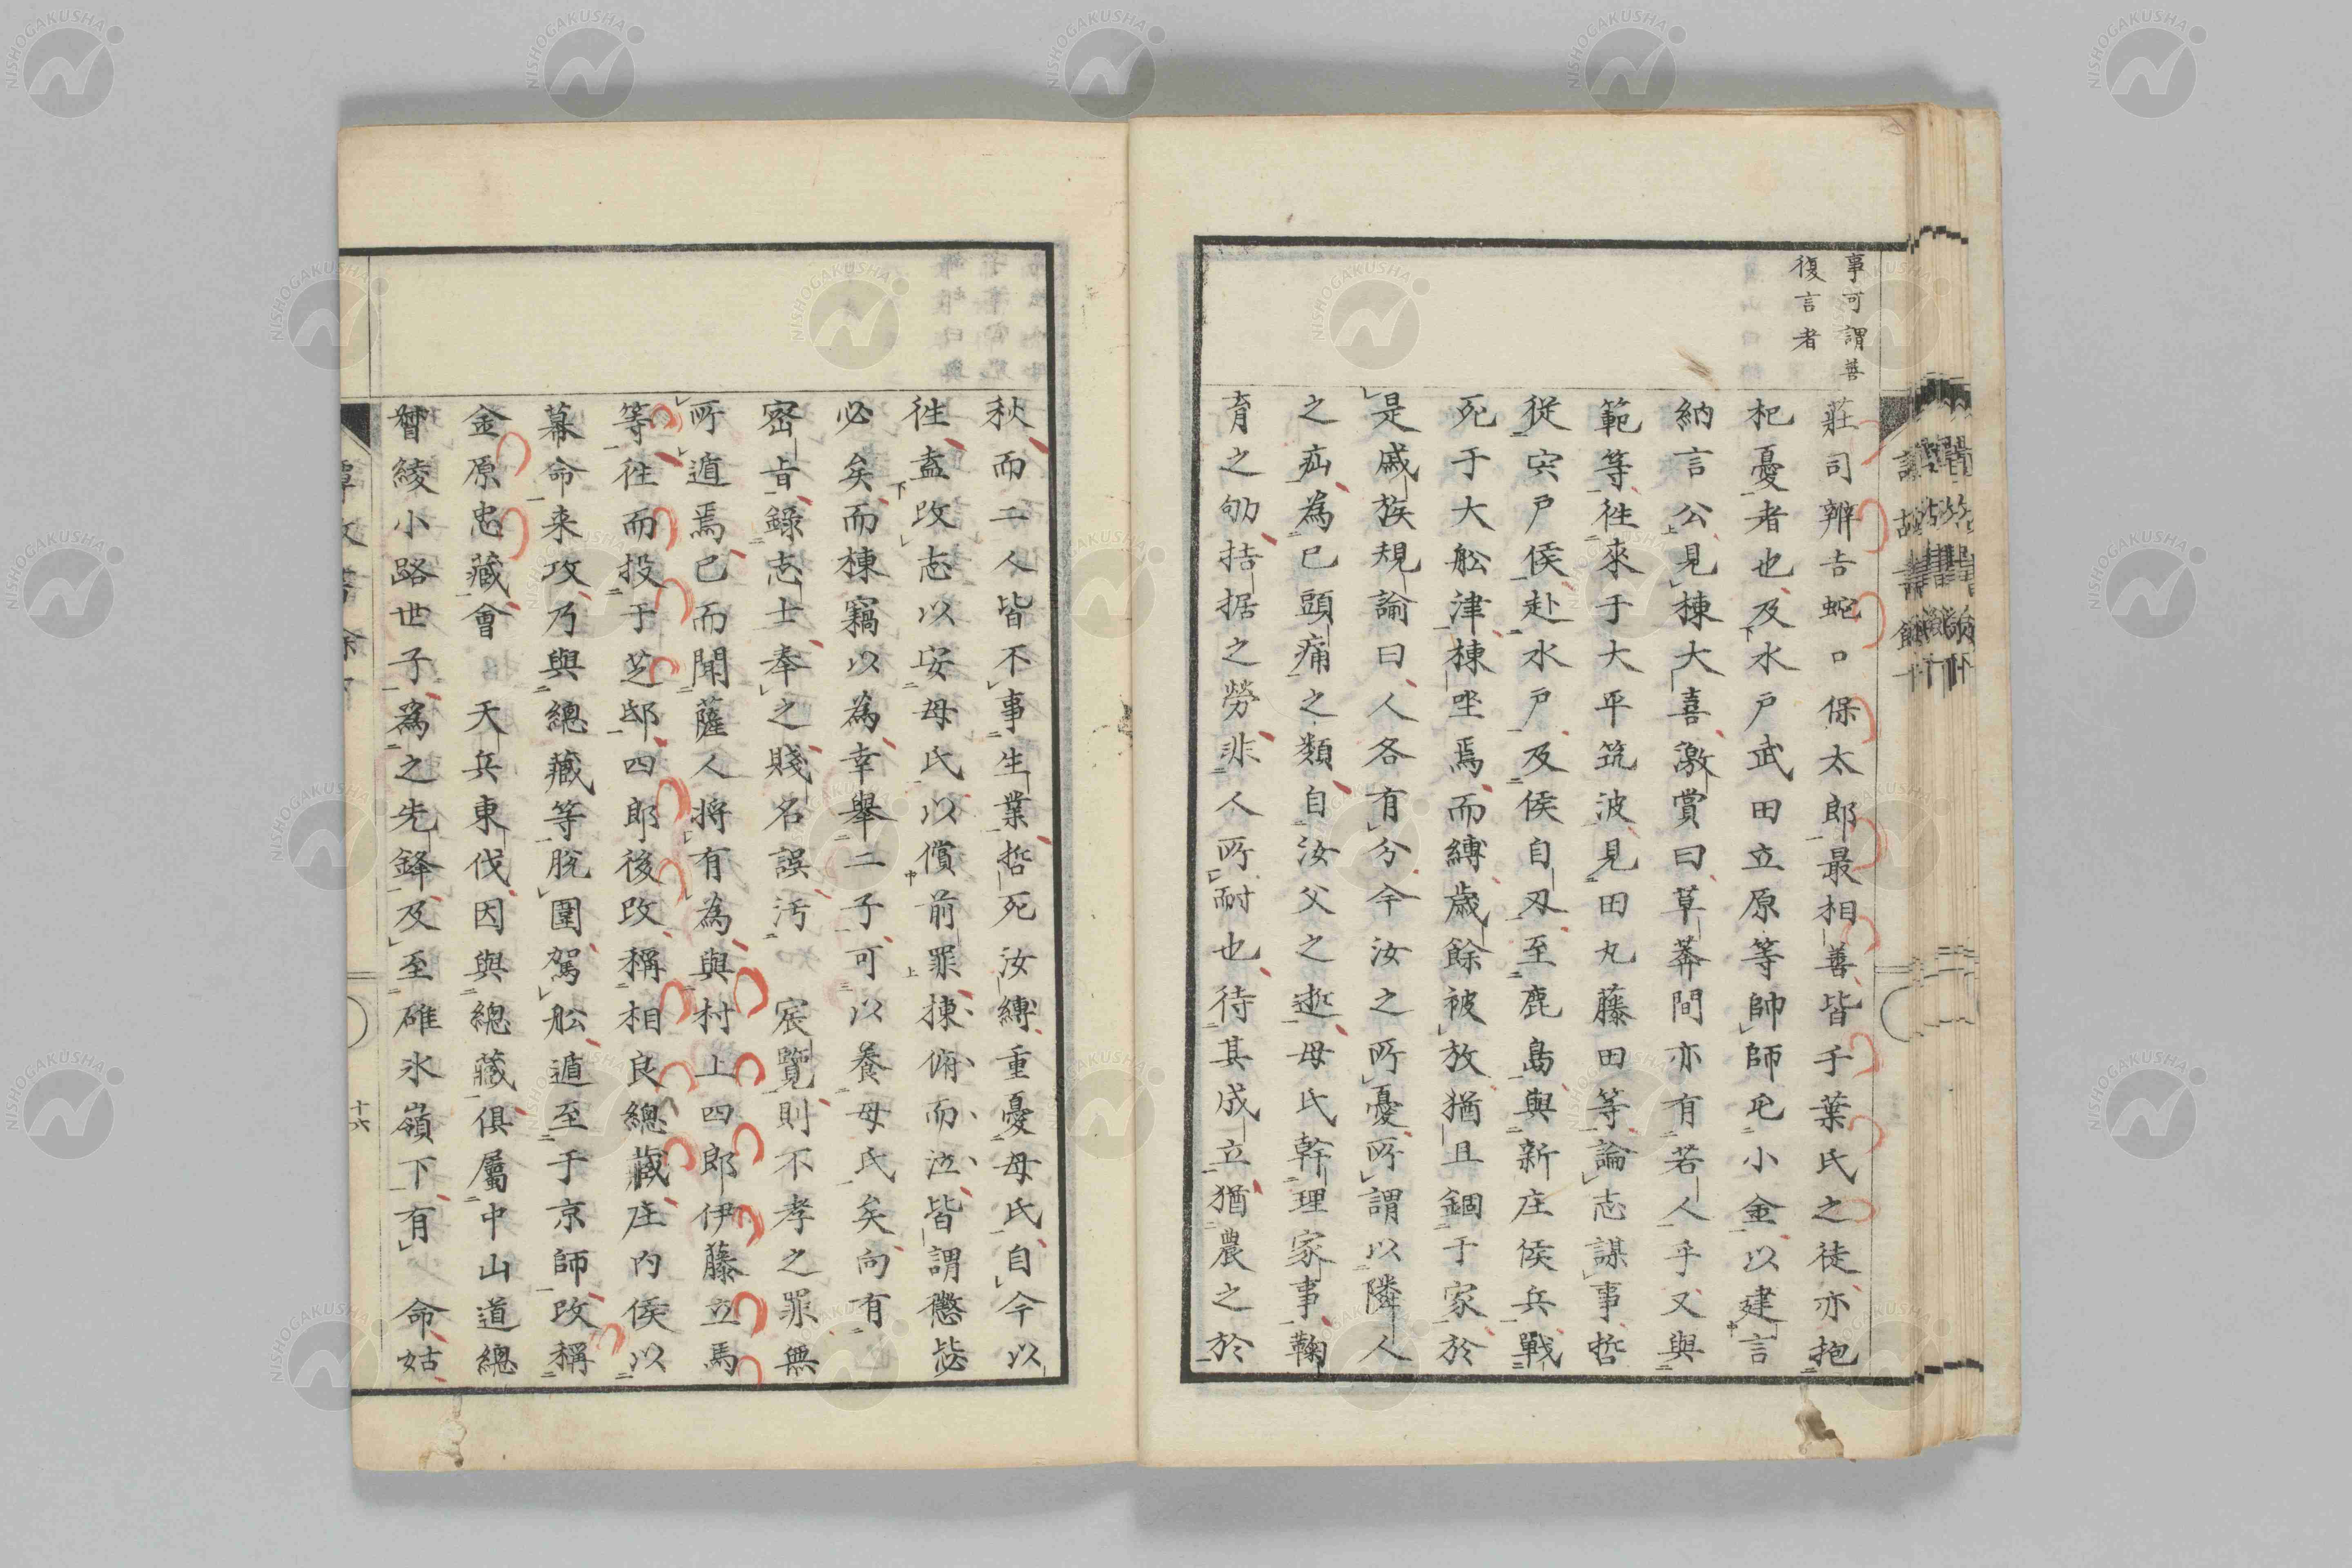 事可謂善
復言者
莊司辨吉蛇口保太郎最相善皆千葉氏之徒亦抱
杞憂者也及水戶武田立原等帥師屯小金以建言
納言公見棟大喜激賞曰草莽間亦有若人乎又與
範等往來于大平筑波見田丸藤田等論志謀事哲
從宍戶侯赴水戶及侯自刃至鹿島與新庄侯兵戰
死于大舩津棟坐焉而縛歲餘被放猶且錮于家於
是戚族規諭曰人各有分今汝之所憂所謂以隣人
之疝為已頭痛之類自汝父之逝母氏幹理家事鞠
育之劬拮据之勞非人所耐也待其成立猶農之於
秋而二人皆不事生業哲死汝縛重憂母氏自今以
往盍改志以安母氏以償前罪棟俯而泣皆謂懲毖
必矣而棟竊以為幸舉二子可以養母氏矣向有
密旨錄志士奉之賤名誤汚
宸覽則不孝之罪無
所遁焉已而聞薩人將有為與村上四郎伊藤立馬
等往而投于芝邸四郎後改稱相良總藏庄内侯以
幕命来攻乃與總藏等脫圍駕舩遁至于京師改稱
金原忠藏會
天兵東伐因與總藏俱屬中山道總
督綾小路世子為之先鋒及至碓氷嶺下有
命姑
十六